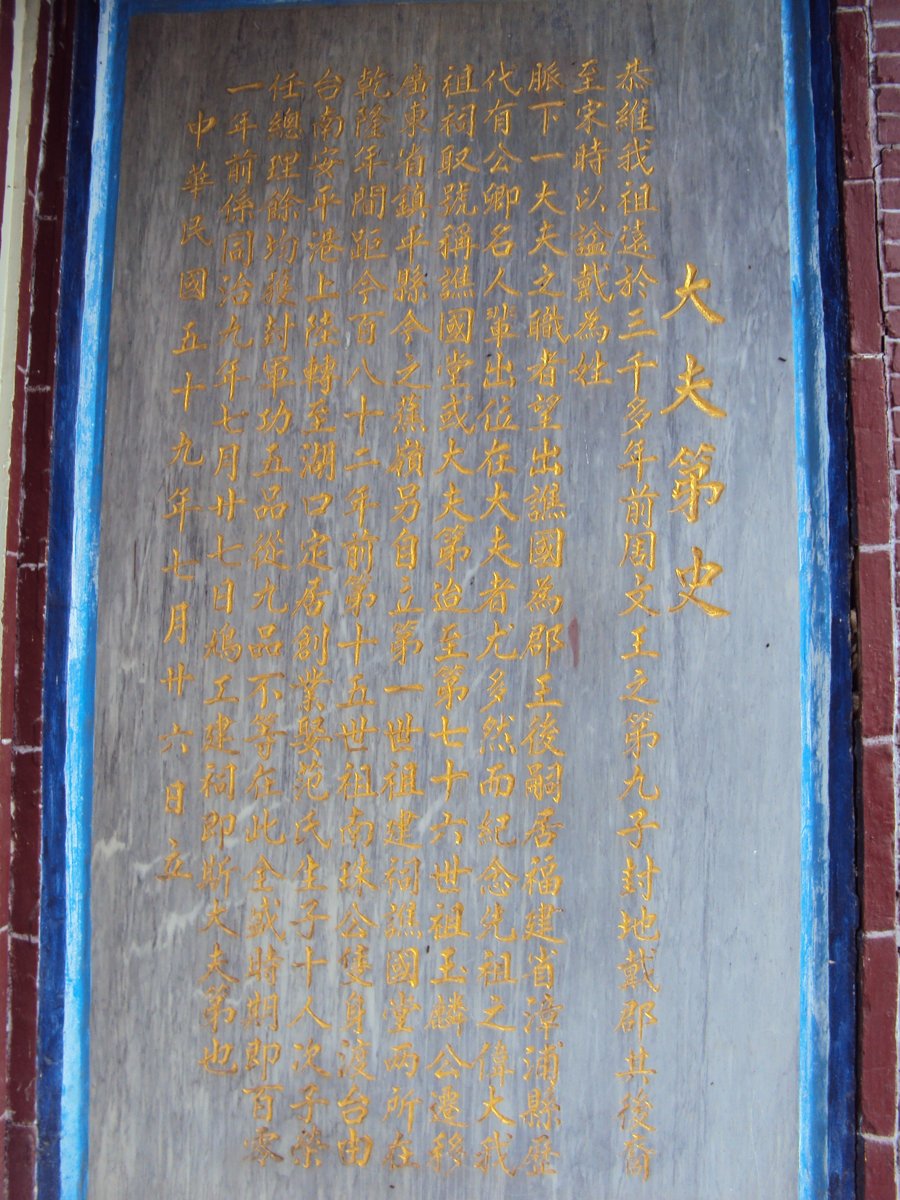 大夫第史
恭維我祖遠於三千多年前周文王之第九子封地戴郡其後裔
至宋時以謚戴為姓
脈下一大夫之職者望出譙國為郡王後嗣居福建省漳浦縣歷
代有公卿名人輩出位在大夫者尤多然而紀念先祖之偉大我
祖祠取號稱譙國堂或大夫第迨至第七十六世祖玉麟公遷移
廣東省鎮平縣今之蕉嶺另自立第一世祖建祠譙國堂兩所在
乾隆年間距今百八十二年前第十五世祖南珠公隻身渡台由
台南安平港上陸轉至湖口定居創業娶范氏生子十人次子榮
任總理餘均襲封軍功五品從九品不等在此全盛時期即百零
一年前係同治九年七月廿七日鳩工建祠即斯大夫第也
中華民國五十九年七月廿六日立